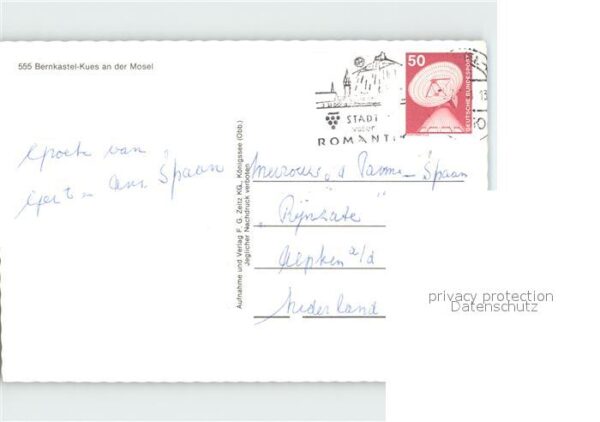 555 Bernkastel-Kues an der Mosel
50
DEUTSCHE BUNDESPOST
13
STADT
voller
ROMANTI
Groete van
Gert - Ans Spaan
Mevrouw Spaan
"Rijnstate"
a/d
Nederland
Aufnahme und Verlag F. G. Zeitz KG., Königssee (Obb.)
Jeglicher Nachdruck verboten
privacy protection
Datenschutz